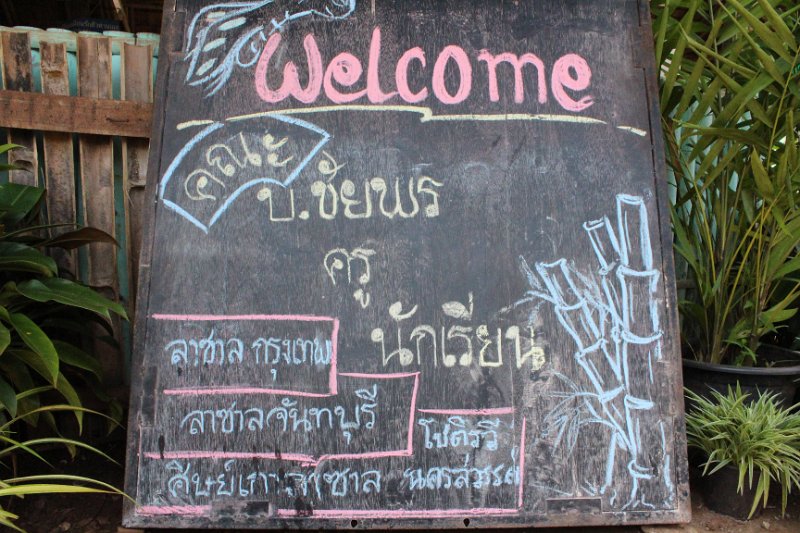 Welcome
คณะ
บ.ชัยพร
ครู
นักเรียน
ลาซาล กรุงเทพ
ลาซาลจันทบุรี
โชติรวี
ศิษย์เก่าลาซาล นครสวรรค์